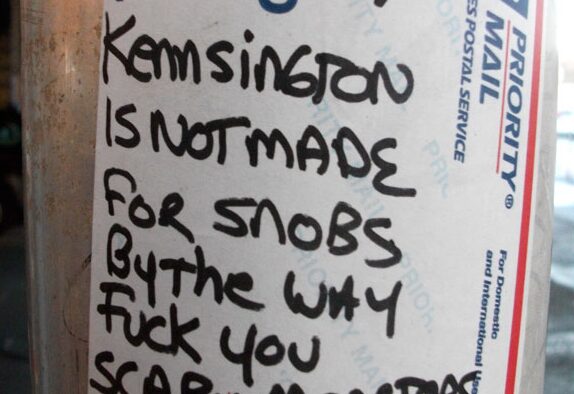 Kennsington
IS NOT MADE
FOR SNOBS
By The WAY
Fuck YOU
PRIORITY®
MAIL
POSTAL SERVICE
For Domestic
and International Use